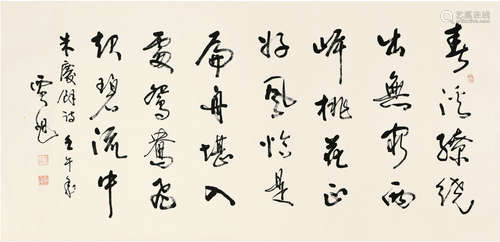 春溪繚繞
出無窮兩
岸桃花正
好風恰是
扁舟堪入
處鴛鴦飛
起碧流中
朱慶餘詩 壬午